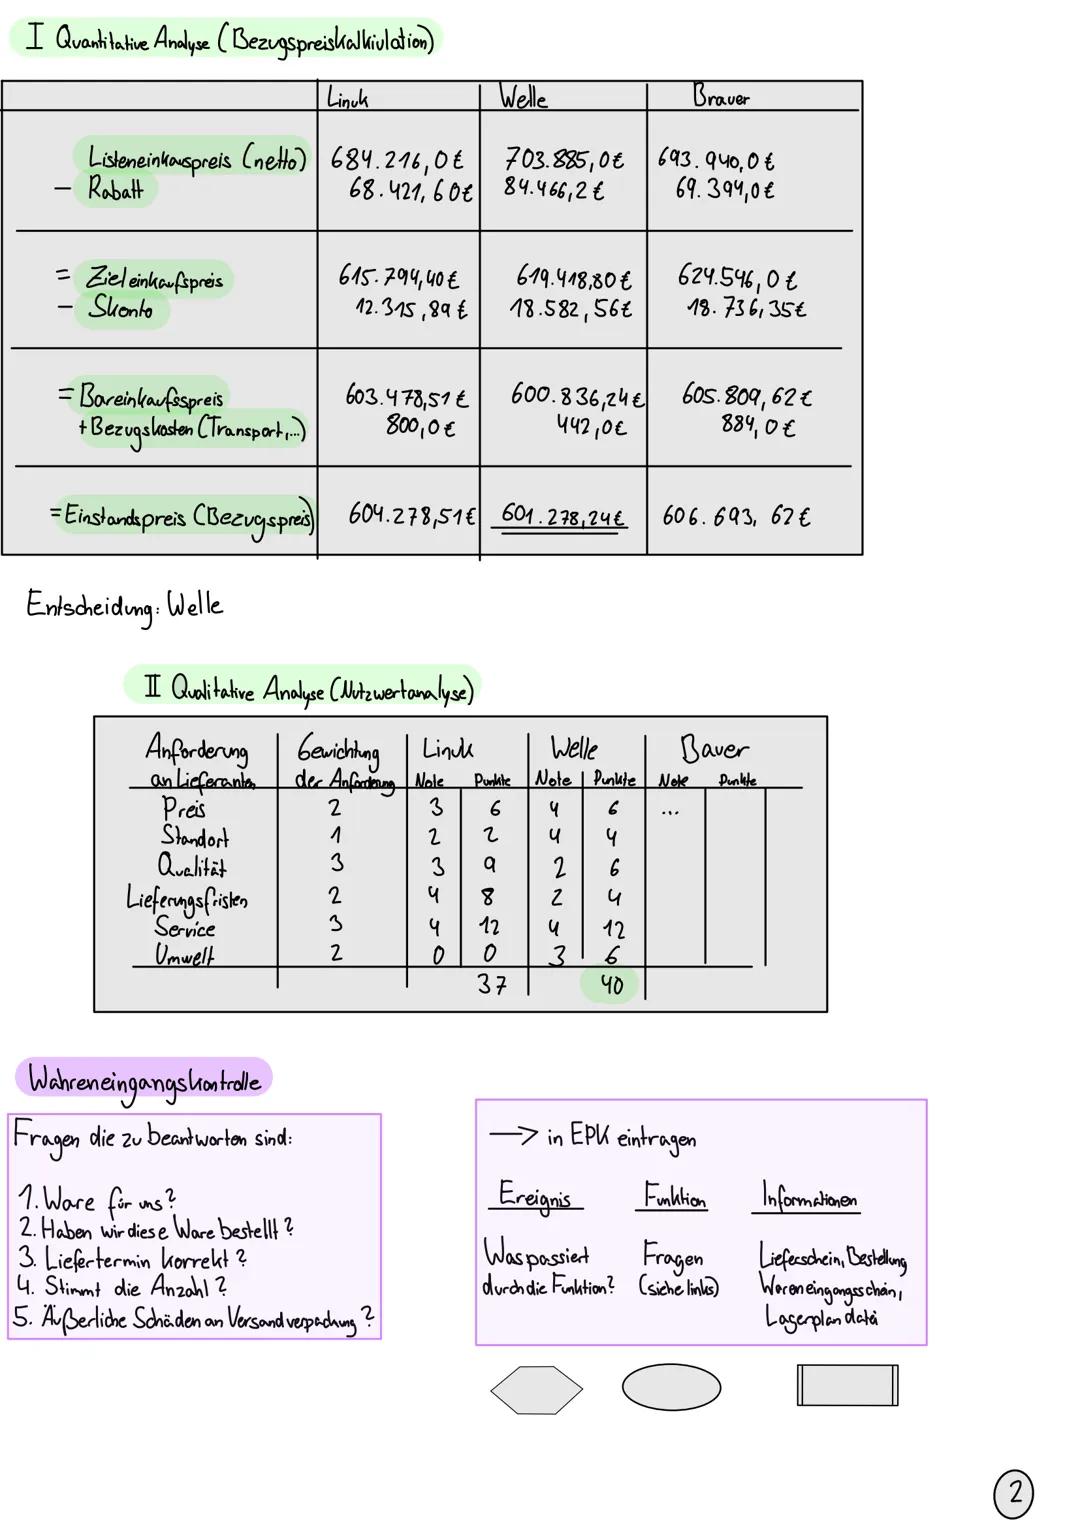 I Quantitative Analyse (Bezugspreiskalkiulation)
Linuk Welle Brauer
Listeneinkauspreis (netto) 684.216,0€ 703.885,0€ 693.940,0€
− Rabatt 68.421,60€ 84.466,2€ 69.394,0€
= Zieleinkaufspreis 615.794,40€ 619.418,80€ 624.546,0€
− Skonto 12.315,89€ 18.582,56€ 18.736,35€
= Bareinkaufsspreis 603.478,51€ 600.836,24€ 605.809,62€
+ Bezugskosten (Transport,...) 800,0€ 442,0€ 884,0€
= Einstandspreis (Bezugspreis) 604.278,51€ 601.278,24€ 606.693,62€
Entscheidung: Welle
II Qualitative Analyse (Nutzwertanalyse)
Anforderung Gewichtung Linuk Welle Bauer
an Lieferanten der Anforderung Note Punkte Note Punkte Note Punkte
Preis 2 3 6 4 6 ...
Standort 1 2 2 4 4
Qualität 3 3 9 2 6
Lieferungsfristen 2 4 8 2 4
Service 3 4 12 4 12
Umwelt 2 0 0 3 6
37 40
Wahreneingangskontrolle
Fragen die zu beantworten sind:
1. Ware für uns?
2. Haben wir diese Ware bestellt?
3. Liefertermin korrekt?
4. Stimmt die Anzahl?
5. Äußerliche Schäden an Versandverpackung?
→ in EPK eintragen
Ereignis Funktion Informationen
Was passiert Fragen Lieferschein, Bestellung
durch die Funktion? (siehe links) Wareneingangsschein,
Lagerplandatei
2